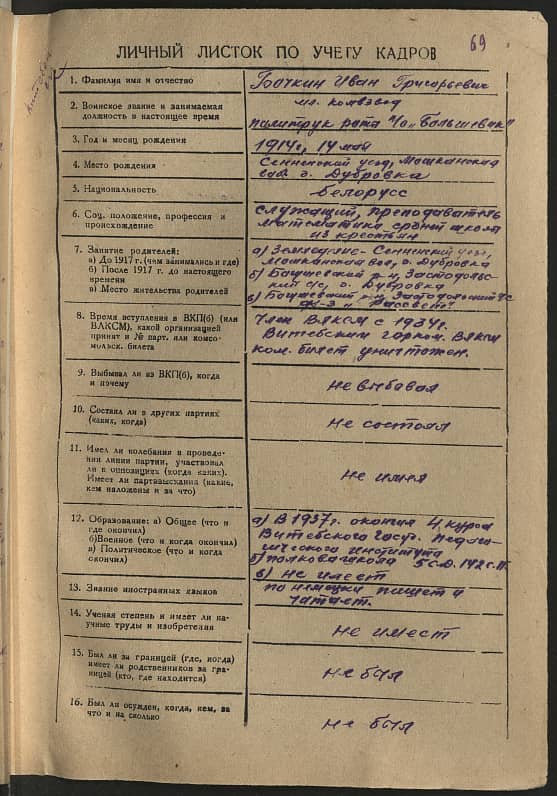 69
ЛИЧНЫЙ ЛИСТОК ПО УЧЕТУ КАДРОВ
1. Фамилия имя и отчество
Бочкин Иван Григорьевич
2. Воинское звание и занимаемая
должность в настоящее время
мл. комвзвод
политрук рота п/о "Большевик"
3. Год и месяц рождения
1914г, 14 май
4. Место рождения
Сенненский уезд, Мошканская
д. Дубровка
5. Национальность
белорусс
6. Соц. положение, профессия и
происхождение
служащий, преподаватель
математики, средней школы
из крестьян
7. Занятие родителей:
а) До 1917 г. (чем занимались и где)
б) После 1917 г. до настоящего
времени
в) Место жительства родителей
а) Сенненский уезд,
Мошканская вол, д. Дубровка
б) Богушевский р-н, Застодоль-
ский с/с, д. Дубровка
в) Богушевский р-н, Застодольский с/с
"Рассвет"
8. Время вступления в ВКП(б) (или
ВЛКСМ), какой организацией
принят и № парт. или комсо-
мольск. билета
Член ВЛКСМ с 1934г.
Витебским горком. ВЛКСМ
ком. билет уничтожен.
9. Выбывал ли из ВКП(б), когда
и почему
Не выбавал
10. Состоял ли в других партиях
(каких, когда)
Не состоял
11. Имел ли колебания в проведе-
нии линии партии, участвовал
ли в оппозициях (когда каких).
Имеет ли партвзыскания (какие,
кем наложены и за что)
Не имел
12. Образование: а) Общее (что и
где окончил)
б) Военное (что и когда окончил)
в) Политическое (что и когда
окончил)
а) В 1937г. окончил 4 курса
Витебского госуд. педаго-
гического института
б) полковая школа 5 с.д. 142 с.п.
в) не имеет
13. Знание иностранных языков
по немецки пишет и
читает.
14. Ученая степень и имеет ли на-
учные труды и изобретения
Не имеет
15. Был ли за границей (где, когда)
имеет ли родственников за гра-
ницей (кто, где находится)
Не был
16. Был ли осужден, когда, кем, за
что и на сколько
Не был